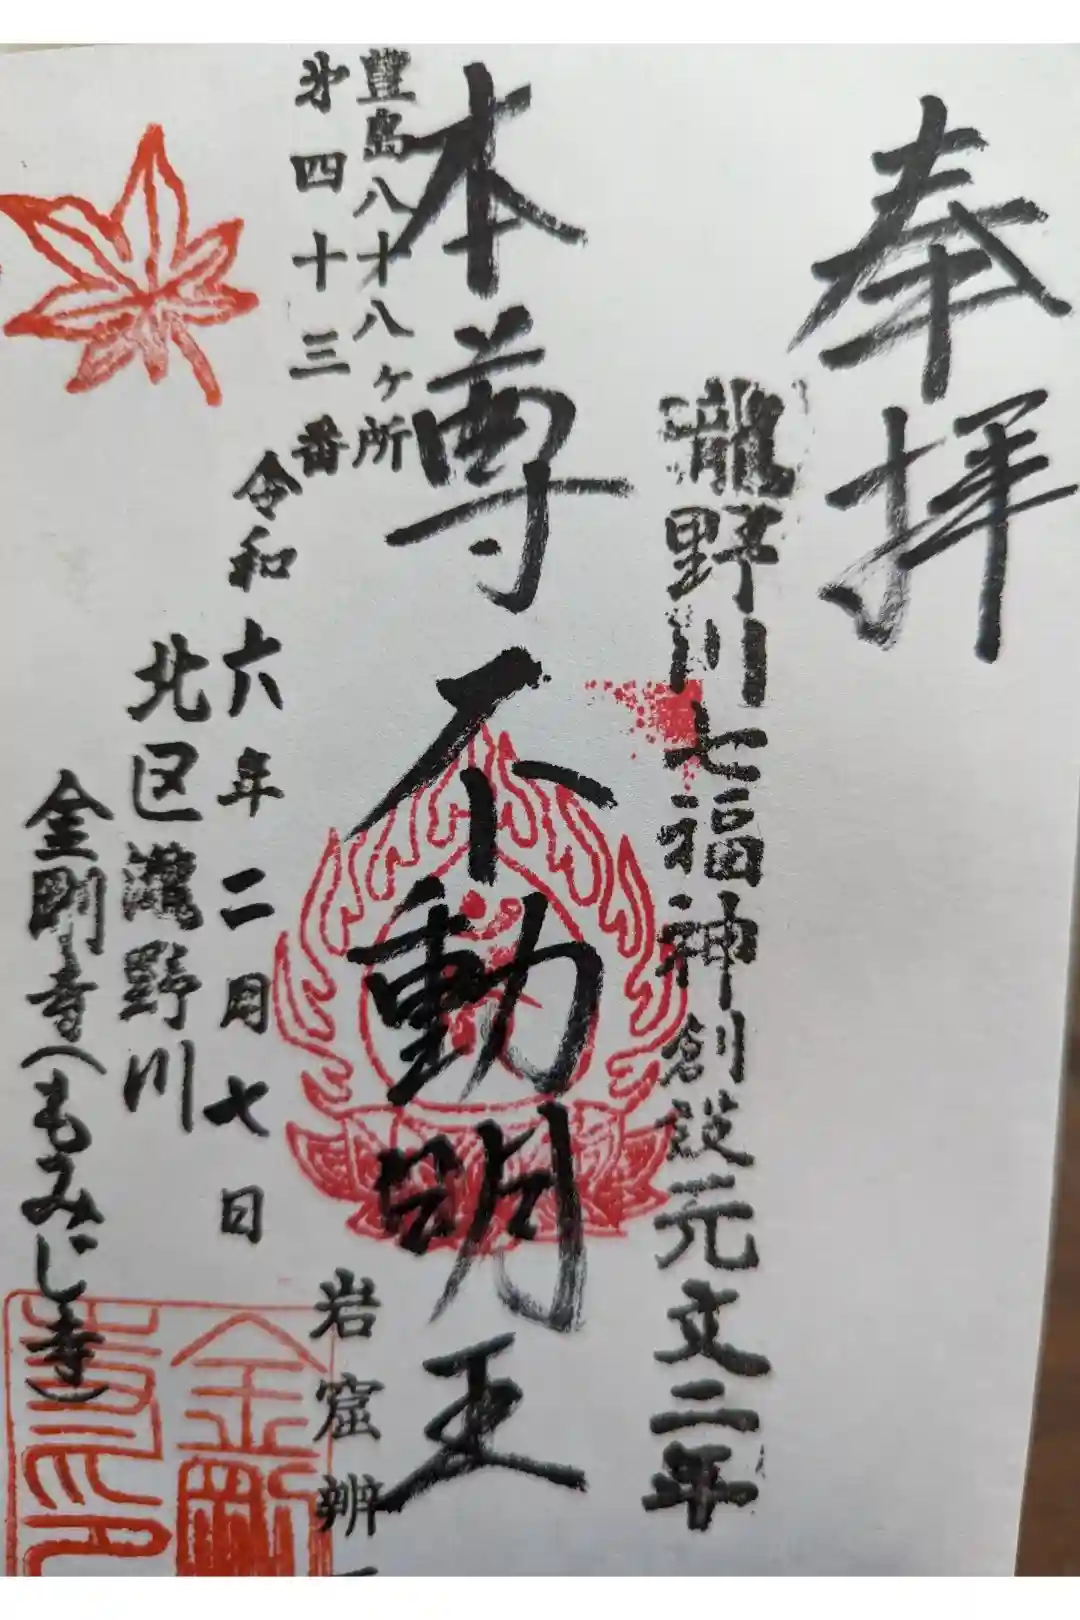 奉拝
瀧野川七福神創設元文二年
本尊不動明王
豊島八十八ヶ所
第四十三番
岩窟辨
令和六年二月七日
北区瀧野川
金剛寺(もみじ寺)
金剛
寺印